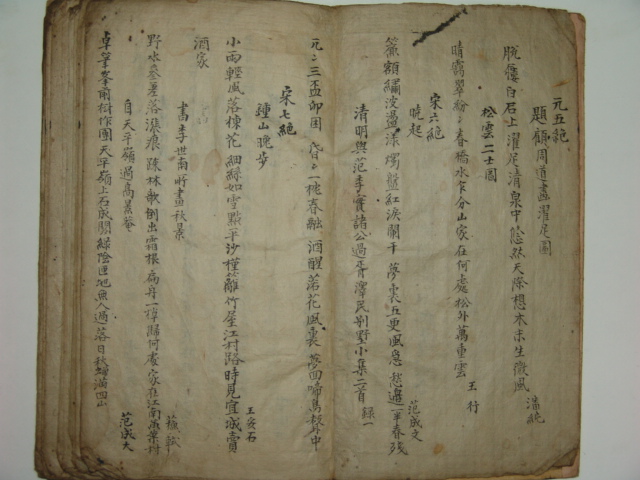 元五絶
題顧周道畫濯足圖
脫屨白石上濯足清泉中悠然天際想木末生微風 潘純
松雲二士圖
晴靄翠紛〻春橋水乍分山家在何處松外萬重雲 王行
宋六絶
曉起
簾額繡波蕩漾燭盤紅淚闌干夢裏五更風急愁邊一半春殘 范成大
清明與范李實諸公過胥澤民别墅小集二首 錄一
元〻三盃卯困昏〻一枕春融酒醒落花風裏夢回啼鳥聲中
宋七絶
鍾山晚步
小雨輕風落楝花細紅如雪點平沙槿籬竹屋江村路時見宜城賣
酒家 王安石
書李世南所畫秋景
野水參差落漲痕疎林欹倒出霜根扁舟一棹歸何處家在江南黃葉村 蘓軾
自天平嶺過高景菴
卓筆峯前樹作團天平嶺上石成關綠陰匝地無人過落日秋蟬滿四山 范成大